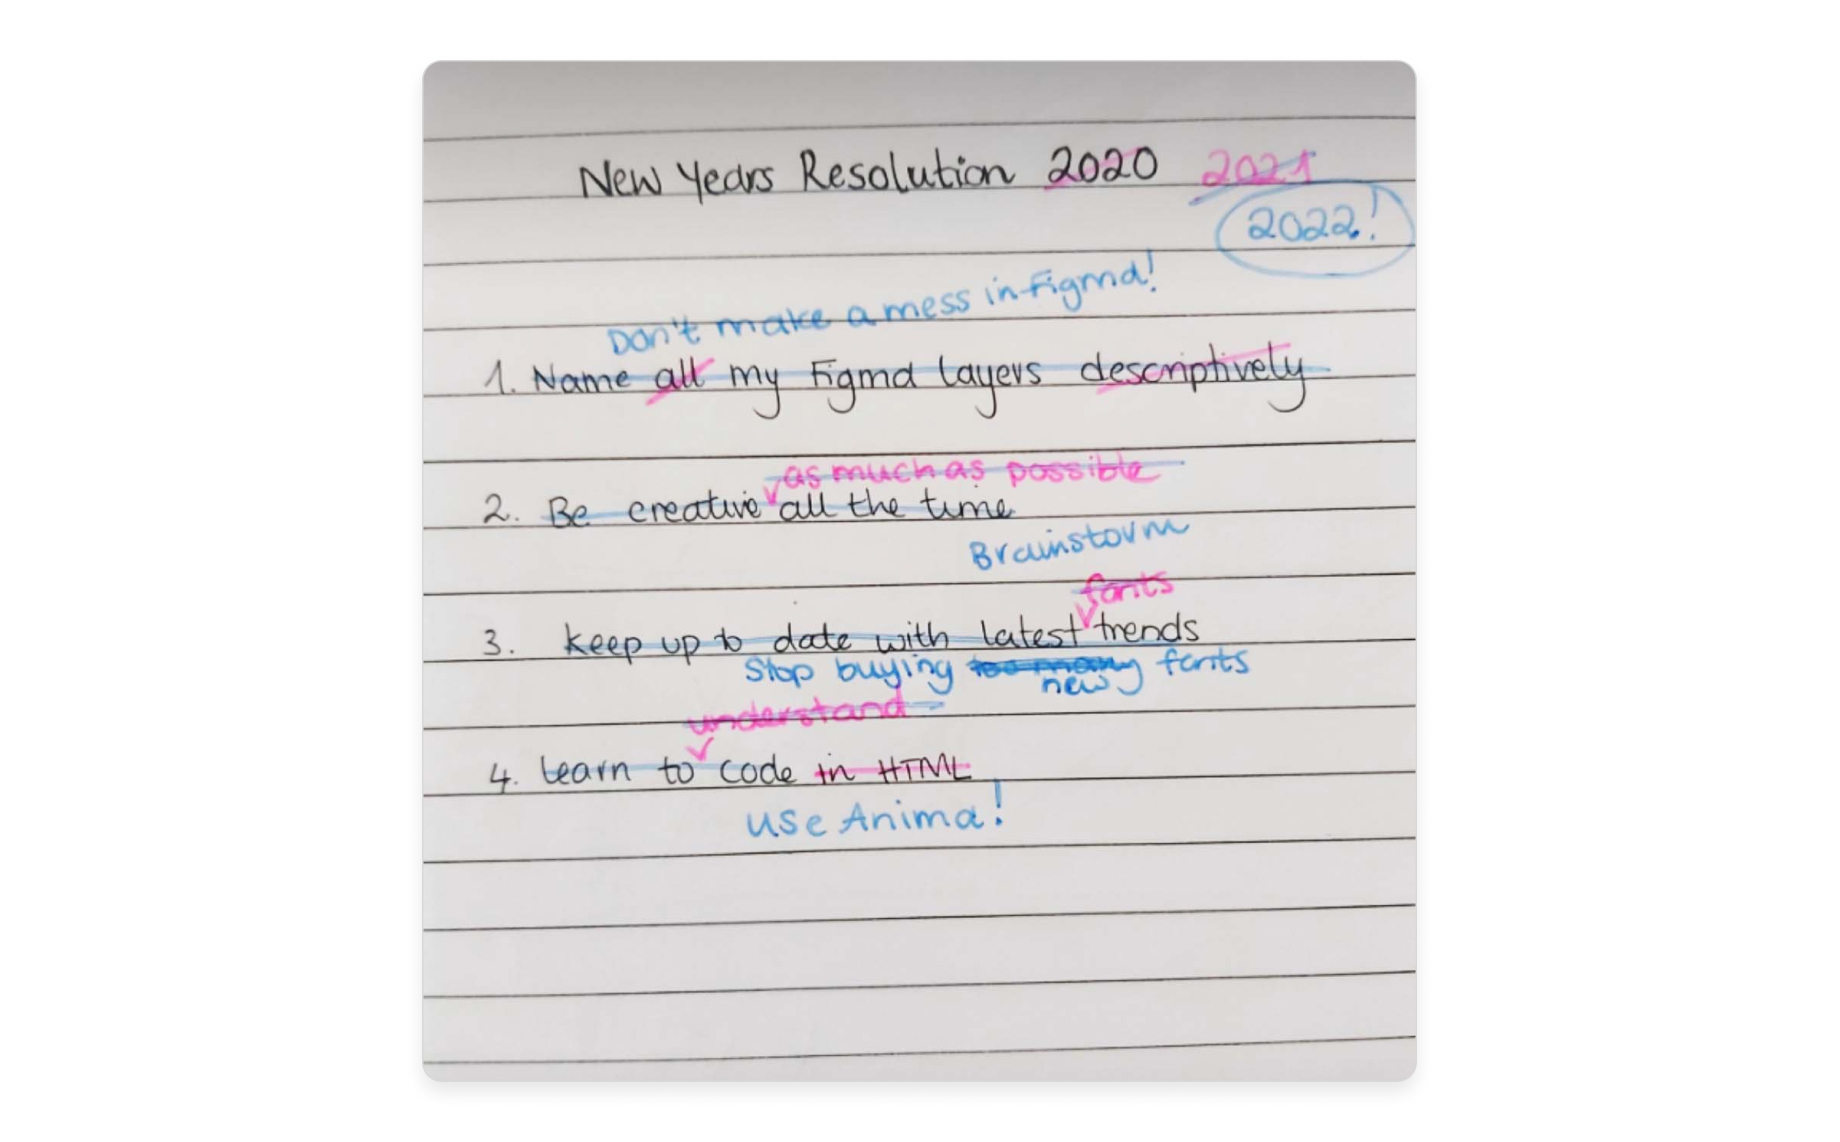 New Years Resolution 2020 2021
2022!
Don't make a mess in Figma!
1. Name all my Figma layers descriptively
as much as possible
2. Be creative all the time
Brainstorm
fonts
3. Keep up to date with latest trends
Stop buying too many fonts
new
understand
4. Learn to code in HTML
Use Anima!